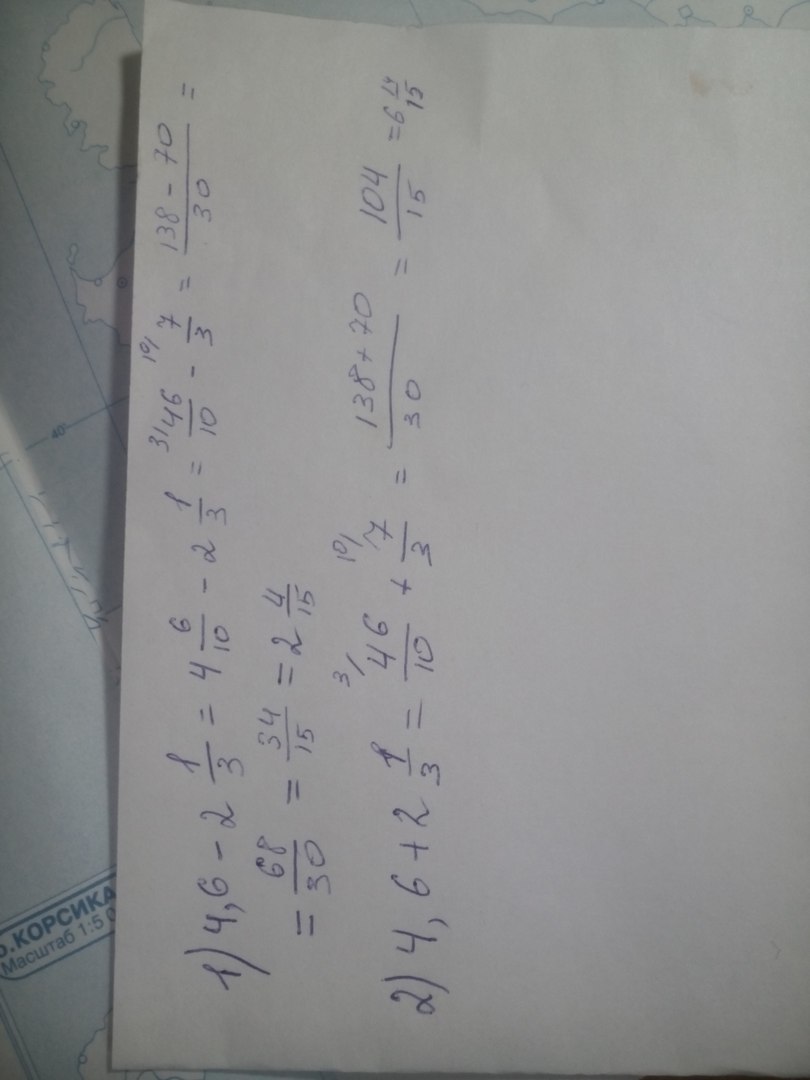 1) 4,6 - 2 1/3 = 4 6/10 - 2 1/3 = 3/ 46/10 - 10/ 7/3 = 138 - 70/30 =
= 68/30 = 34/15 = 2 4/15
2) 4,6 + 2 1/3 = 3/ 46/10 + 10/ 7/3 = 138 + 70/30 = 104/15 = 6 14/15
о.КОРСИКА
Масштаб 1:5 0
40°